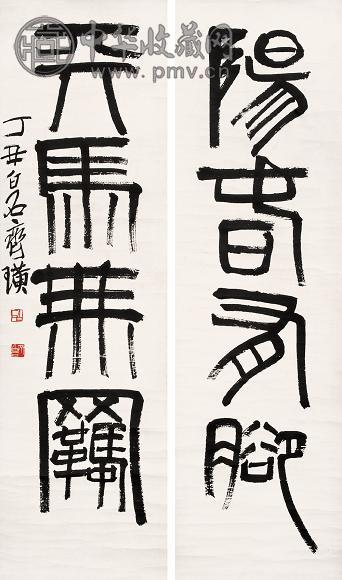 中华收藏网
www.pmv.cn
陽春有腳
天馬無羈
丁丑白石齊璜